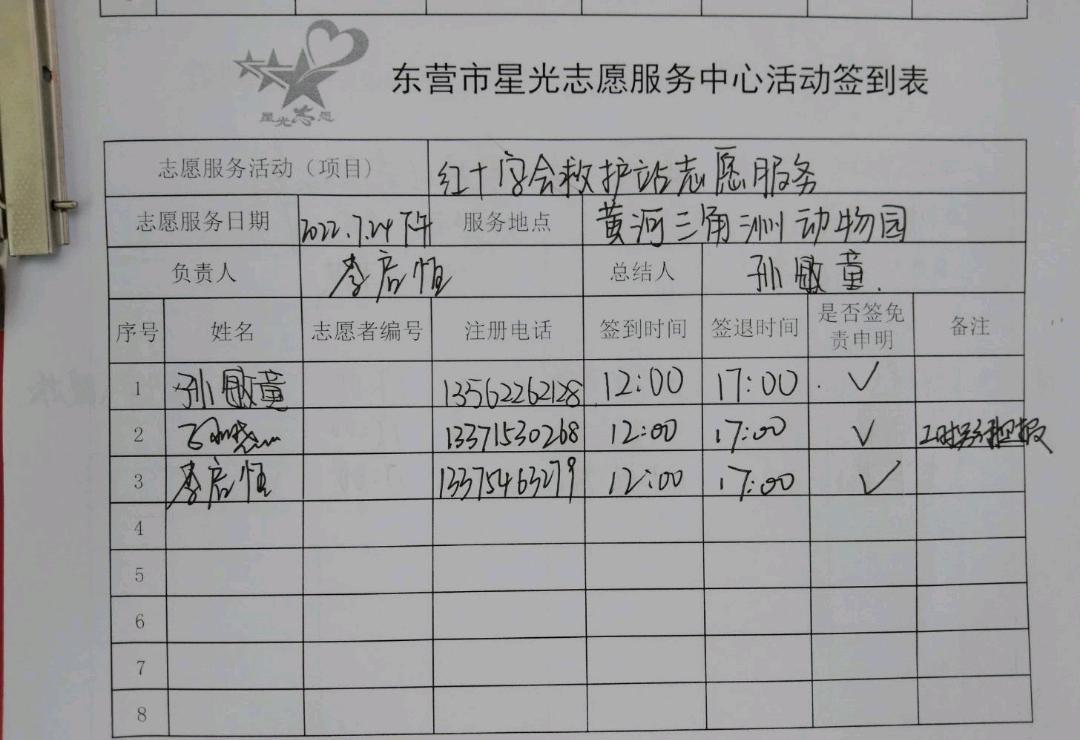 星光志愿
东营市星光志愿服务中心活动签到表
志愿服务活动（项目） 红十字会救护站志愿服务
志愿服务日期 2022.7.24下午 服务地点 黄河三角洲动物园
负责人 李启恒 总结人 孙敏童
序号 姓名 志愿者编号 注册电话 签到时间 签退时间 是否签免责申明 备注
1 孙敏童 13562262128 12:00 17:00 ✓
2 13371530268 12:00 17:00 ✓
3 李启恒 13375463279 12:00 17:00 ✓
4
5
6
7
8